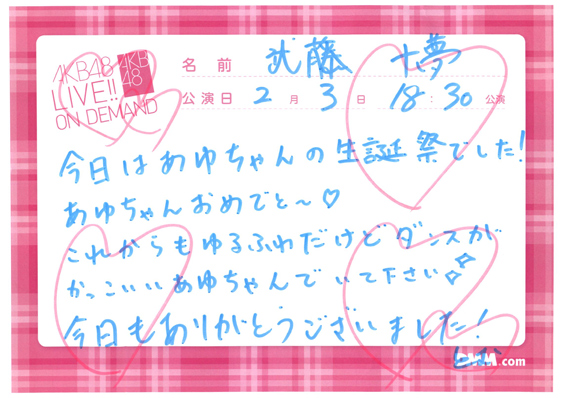 AKB48
LIVE!!
ON DEMAND
AKB
48
名前 武藤 十夢
公演日 2月3日 18:30公演
今日はあゆちゃんの生誕祭でした!
あゆちゃんおめでと〜♡
これからもゆるふわだけどダンスが
かっこいいあゆちゃんでいて下さい
今日もありがとうございました!
DMM.com
とむ